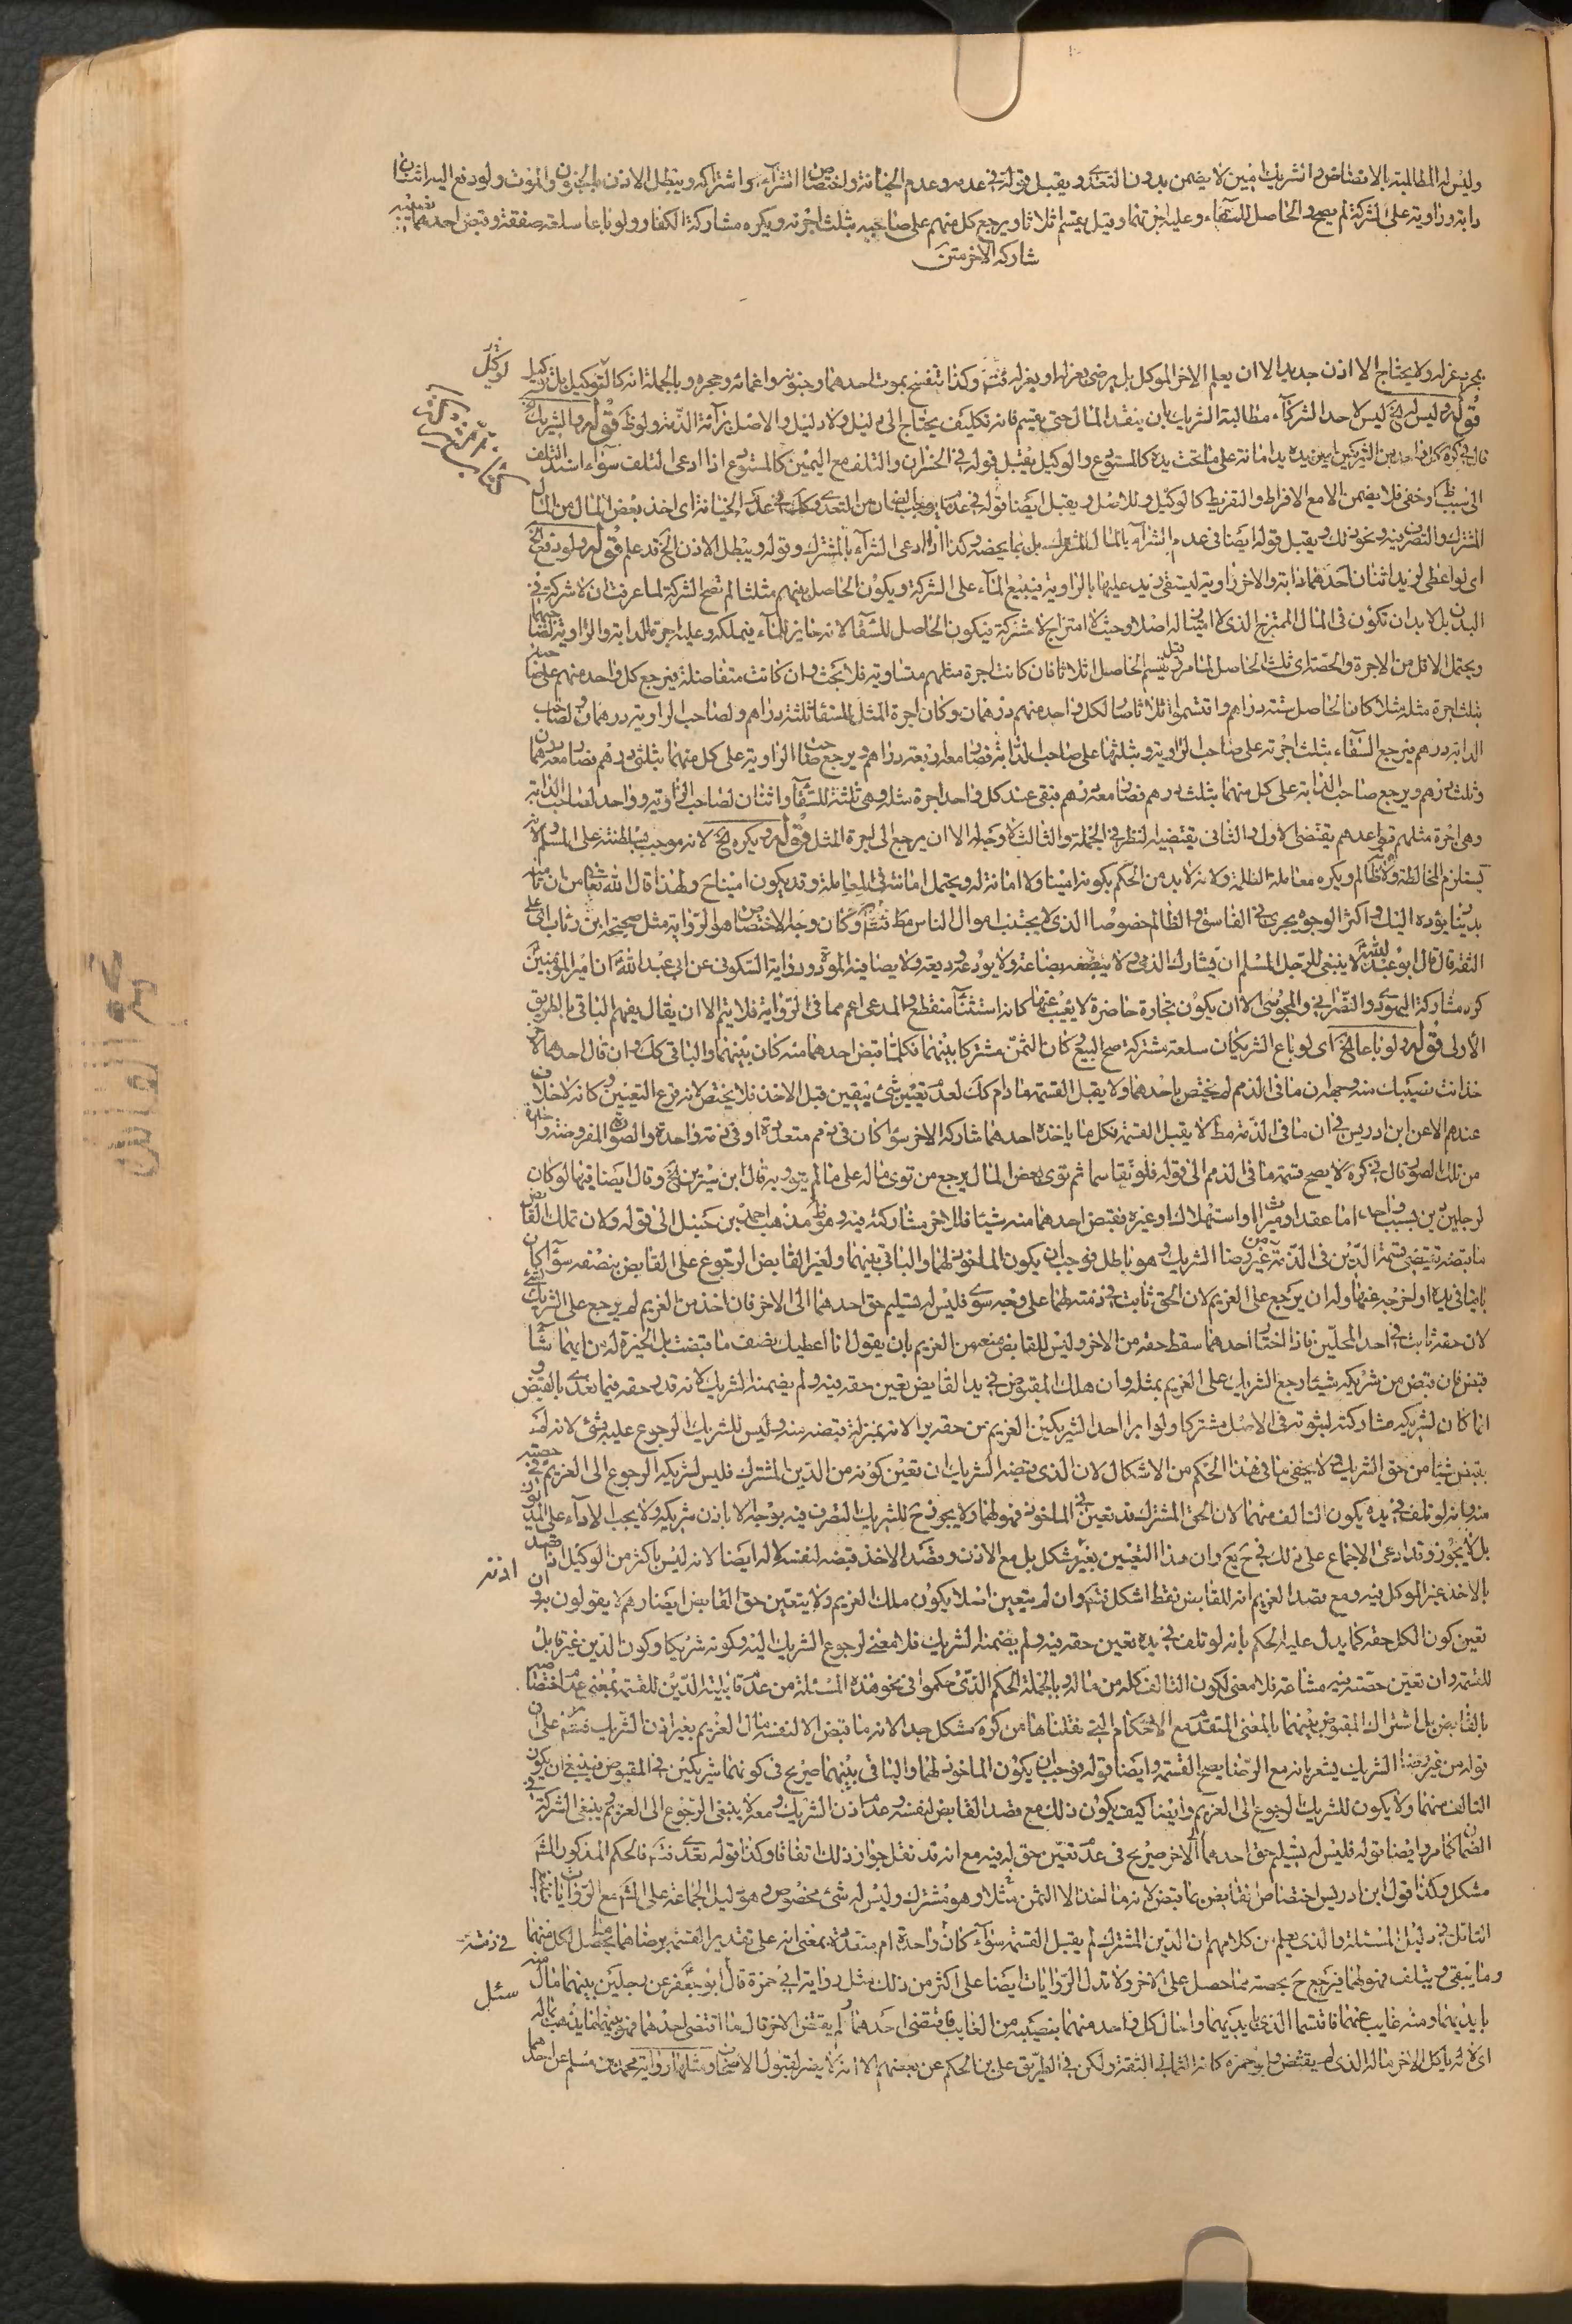 وليس له المطالبة بالانضاض والشريك امين لا يضمن بدون التعدي ويقبل قوله في عدمه وعدم الخيانة واختصاص الشراء واشتراكه ويبطل الاذن بالجنون والموت ولو دفع اليه اثنان
دابة وراوية على الشركة لم يصح والحاصل للسقاء وعليه اجرتهما وقيل يقتسم اثلاثا ويرجع كل منهم على صاحبيه بثلث اجرته ويكره مشاركة الكفار ولو باعا سلعة صفقة وقبض احدهما نصيبه
شاركه الاخر متن
بمجرد عزله ولا يحتاج الا اذن جديد الا ان يعلم الاخر الموكل بل يرضى بعزله او يعزله فتم وكذا تنفسخ بموت احدهما وجنونه واغمائه وحجره وبالجملة انه كالتوكيل بل توكيل
قوله وليس له الخ ليس لاحد الشركاء مطالبة الشريك بان ينقد المال حتى يقسم فانه تكليف يحتاج الى دليل ولا دليل والاصل برائة الذمة وهو ظ قوله والشريك
قال في كره كل واحد من الشريكين امين يده يد امانة على ما تحت يده كالمستودع والوكيل يقبل قوله في الخسران والتلف مع اليمين كالمستودع اذا ادعى التلف سواء اسند التلف
الى سبب ظ او خفي فلا يضمن الا مع الافراط والتفريط كالوكيل وللاصل ويقبل ايضا قوله في عدم ما يوجب الضمان من التعدي وكك في عدم الخيانة اي اخذ بعض المال من المال
المشترك والتصرف فيه ونحو ذلك ويقبل قوله ايضا في عدم الشراء بالمال المشترك بل بما يخصه وكذا اذا ادعى الشراء بالمشترك وقوله ويبطل الاذن الخ قد علم قوله ولو دفع الخ
اي لو اعطى لزيد اثنان احدهما دابة والاخر راوية ليستقي زيد عليها بالراوية فيبيع الماء على الشركة ويكون الحاصل بينهم مثلثا لم تصح الشركة لما عرفت ان لا شركة في
البدن بل لا بد ان تكون في المال الممتزج الذي لا امتياز له اصلا وحيث لا امتزاج لا شركة فيكون الحاصل للسقا لانه حايز للماء فيملكه وعليه اجرة الدابة والراوية لصاحبهما
ويحتمل الاقل من الاجرة والحصة اي ثلث الحاصل لما مر وقيل يقسم الحاصل اثلاثا فان كانت اجرة مثلهم متساوية فلا بحث وان كانت متفاضلة فيرجع كل واحد منهم على صاحبيه
بثلث اجرة مثله مثلا كان الحاصل ستة دراهم واقتسموا اثلاثا صار لكل واحد منهم درهمان وكان اجرة المثل للسقا ثلثة دراهم ولصاحب الراوية درهمان ولصاحب
الدابة درهم فيرجع السقاء بثلث اجرته على صاحب الراوية وبثلثها على صاحب الدابة فصار معه اربعة دراهم ويرجع صاحب الراوية على كل منهما بثلثي درهم فصار معه درهمان
وثلث درهم ويرجع صاحب الدابة على كل منهما بثلث درهم فصار معه درهم فبقي عند كل واحد اجرة مثله وهي ثلثة للسقاء واثنان لصاحب الراوية وواحد لصاحب الدابة
وهي اجرة مثلهم قواعدهم يقتضي الاول والثاني يقتضيه النظر في الجملة والثالث لا وجه له الا ان يرجع الى اجرة المثل قوله ويكره الخ لانه موجب لسلطنته على المسلم ولانه
يستلزم المخالطة ولانه ظالم ويكره معاملة الظلمة ولانه لا بد من الحكم بكونه امينا ولا امانة له ويحتمل امانته في المعاملة وقد يكون امينا ح ولهذا قال الله تعالى من ان تامنه
بدينار يؤده اليك واكثر الوجوه يجري في الفاسق والظالم خصوصا الذي لا يجتنب اموال الناس مط فتم وكان وجه الاختصاص هو الرواية مثل صحيحة ابن رئاب اي علي
الثقة قال قال ابو عبد الله لا ينبغي للرجل المسلم ان يشارك الذمي ولا يبضعه بضاعة ولا يودعه وديعة ولا يصافيه المودة ورواية السكوني عن ابي عبد الله ان امير المؤمنين
كره مشاركة اليهودي والنصراني والمجوسي الا ان يكون تجارة حاضرة لا يغيب عنها كانه استثناء منقطع والمدعى اعم مما في الرواية فلا يتم الا ان يقال يفهم الباقي بالطريق
الاولى قوله ولو باعا الخ اي لو باع الشريكان سلعة مشتركة صح البيع وكان الثمن مشتركا بينهما فكلما قبض احدهما منه كان بينهما والباقي كك وان قال احدهما لاخر
خذ انت نصيبك منه وجهه ان ما في الذمم لا يختص باحدهما ولا يقبل القسمة ما دام كك لعدم تعيين شئ بيقين قبل الاخذ فلا يختص لانه فرع التعيين وكانه لا خلاف
عندهم الا عن ابن ادريس في ان ما في الذمة مط لا يقبل القسمة فكل ما ياخذه احدهما شاركه الاخر سواء كان في ذمم متعددة او في ذمة واحدة والصورة المفروضة واحدة
من تلك الصور قال في كره لا يصح قسمة ما في الذمم الى قوله فلو تقاسما ثم توى بعض المال يرجع من توى ماله على من لم يتو وبه قال ابن سيرين الخ وقال ايضا فيما لو كان
لرجلين دين بسبب واحد اما عقد او ميراث او استهلاك او غيره فقبض احدهما منه شيئا فللاخر مشاركته فيه وهو ظ مذهب احمد بن حنبل الى قوله ولان تملك القابض
ما قبضه يقتضي قسمة الدين في الذمة من غير رضا الشريك وهو باطل فوجب ان يكون الماخوذ لهما والباقي بينهما ولغير القابض الرجوع على القابض بنصفه سواء كان
باقيا في يده او اخرجه عنها وله ان يرجع على الغريم لان الحق ثابت في ذمته لهما على وجه سوي فليس له تسليم حق احدهما الى الاخر فان اخذ من الغريم لم يرجع على الشريك بشئ
لان حقه ثابت في احد المحلين فاذا اختار احدهما سقط حقه من الاخر وليس للقابض منعه من الغريم بان يقول انا اعطيك نصف ما قبضت بل الخيرة له من ايهما شاء
قبض فان قبض من شريكه شيئا رجع الشريك على الغريم بمثله وان هلك المقبوض في يد القابض تعين حقه فيه ولم يضمنه للشريك لانه قدر حقه فيما تعدى بالقبض و
انما كان لشريكه مشاركته لثبوته في الاصل مشتركا ولو ابرا احد الشريكين الغريم من حقه برا لانه بمنزلة قبضه منه وليس للشريك الرجوع عليه بشئ لانه لم
يقبض شيئا من حق الشريك ولا يخفى ما في هذا الحكم من الاشكال لان الذي قبضه الشريك ان تعين كونه من الدين المشترك فليس لشريكه الرجوع الى الغريم في حصته
منه فانه لو تلف في يده يكون التالف منهما لان الحق المشترك قد تعين في الماخوذ فهو لهما ولا يجوز ح للشريك التصرف فيه بوجه الا باذن شريكه ولا يجب الاداء على المديون
بل لا يجوز وقد ادعى الاجماع على ذلك في ح يع وان هذا التعيين بغير مشكل بل مع الاذن وقصد الاخذ قبضه لنفسه لا له ايضا لانه ليس باكثر من الوكيل اذا قصد
بالاخذ غير الموكل فيه ومع قصد الغريم انه للقابض فقط اشكل فتم وان لم يتعين اصلا يكون ملك الغريم ولا يتعين حق القابض ايضا وهم لا يقولون به وان
تعين كون الكل حقه كما يدل عليه الحكم بانه لو تلف في يده تعين حقه فيه ولم يضمنه للشريك فلا معنى لرجوع الشريك اليه وكونه شريكا وكون الدين غير قابل
للقسمة وان تعين حصته فيه مشاعة فلا معنى لكون التالف كله من ماله وبالجملة الحكم الذي حكموا في نحو هذه المسئلة من عدم قابلية الدين للقسمة بمعنى عدم اختصاصه
بالقابض بل اشتراك المقبوض بينهما بالمعنى المتقدم مع الاحكام التي نقلناها من كره مشكل جدا لانه ما قبض الا لنفسه مال الغريم بغير اذن الشريك فتم على ان
قوله من غير رضا الشريك يشعر بانه مع الرضا يصح القسمة وايضا قوله فوجب ان يكون الماخوذ لهما والباقي بينهما صريح في كونهما شريكين في المقبوض فينبغي ان يكون
التالف منهما ولا يكون للشريك الرجوع الى الغريم وايضا كيف يكون ذلك مع قصد القابض لنفسه وعدم اذن الشريك ومعه لا ينبغي الرجوع الى الغريم ولم ينبغي الشركة في
الضمان كما مر وايضا قوله فليس له تسليم حق احدهما الى الاخر صريح في عدم تعين حق له فيه مع انه قد نقل جواز ذلك اتفاقا وكذا قوله بعدى فتم فالحكم المذكور المشهور
مشكل وكذا قول ابن ادريس اختصاص القابض بما قبض لانه ما اخذ الا الثمن مثلا وهو مشترك وليس له شئ مخصوص وهو دليل الجماعة على المشهور مع الروايات
التامل في دليل المسئلة والذي يعلم من كلامهم ان الدين المشترك لم يقبل القسمة سواء كان واحدة ام متعددة بمعنى انه على تقدير القسمة برضاهما يحصل لكل منهما
وما يبقى ويتلف فهو لهما فيرجع ح بحصته مما حصل على الاخر ولا تدل الروايات ايضا على اكثر من ذلك مثل رواية ابي حمزة قال ابو جعفر عن رجلين بينهما مال
بايديهما ومنه غايب عنهما فاقتسما الذي بايديهما واحال كل واحد منهما بنصيبه من الغايب فاقتضى احدهما ولم يقتض الاخر قال ما اقتضى احدهما فهو بينهما ما يذهب بماله
اي لا ياكل الاخر ماله الذي لم يقتض وابو حمزة كانه الثمالي الثقة ولكن في الطريق علي بن الحكم عن بعضهم الا انه لا يضر لقبول الاصحاب ومثلها رواية محمد بن مسلم عن احدهما
اذنه
في ذمته
سئل